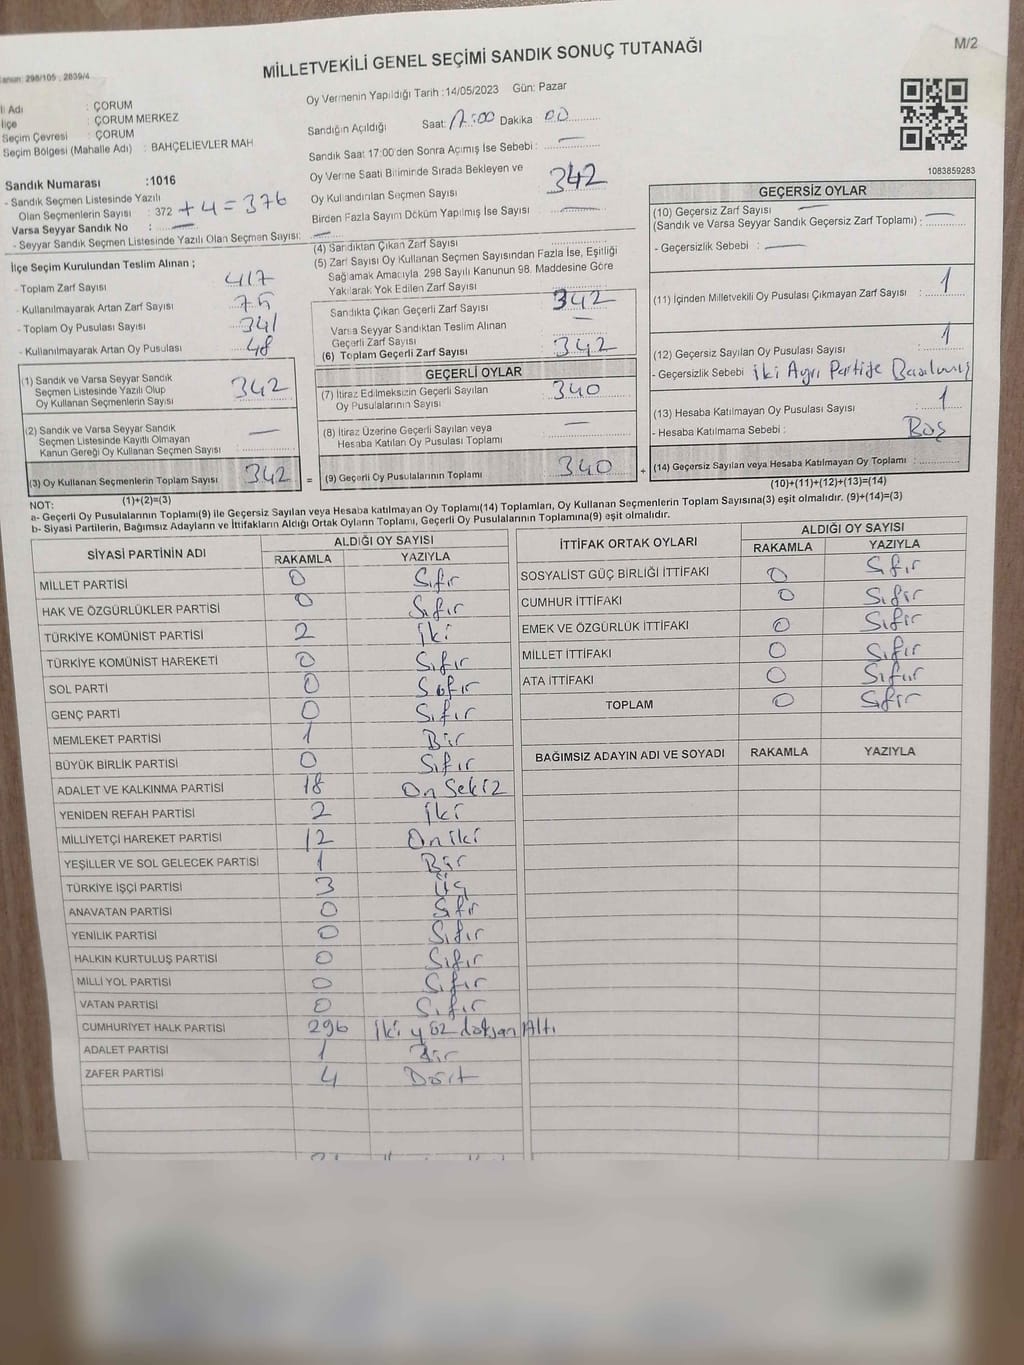 M/2
MİLLETVEKİLİ GENEL SEÇİMİ SANDIK SONUÇ TUTANAĞI
298/105 , 2839/4
İl Adı : ÇORUM
İlçe : ÇORUM MERKEZ
Seçim Çevresi : ÇORUM
Seçim Bölgesi (Mahalle Adı) : BAHÇELİEVLER MAH
Sandık Numarası :1016
- Sandık Seçmen Listesinde Yazılı
Olan Seçmenlerin Sayısı : 372 + 4 = 376
Varsa Seyyar Sandık No : —
- Seyyar Sandık Seçmen Listesinde Yazılı Olan Seçmen Sayısı: —
Oy Vermenin Yapıldığı Tarih :14/05/2023 Gün: Pazar
Sandığın Açıldığı Saat: 17:00 Dakika 00
Sandık Saat 17:00'den Sonra Açımış İse Sebebi : —
Oy Verme Saati Bitiminde Sırada Bekleyen ve
Oy Kullandırılan Seçmen Sayısı 342
Birden Fazla Sayım Döküm Yapılmış İse Sayısı —
1083859283
İlçe Seçim Kurulundan Teslim Alınan ;
- Toplam Zarf Sayısı 417
- Kullanılmayarak Artan Zarf Sayısı 75
- Toplam Oy Pusulası Sayısı 341
- Kullanılmayarak Artan Oy Pusulası 48
(1) Sandık ve Varsa Seyyar Sandık
Seçmen Listesinde Yazılı Olup
Oy Kullanan Seçmenlerin Sayısı 342
(2) Sandık ve Varsa Seyyar Sandık
Seçmen Listesinde Kayıtlı Olmayan
Kanun Gereği Oy Kullanan Seçmen Sayısı —
(3) Oy Kullanan Seçmenlerin Toplam Sayısı 342 =
(1)+(2)=(3)
(4) Sandıktan Çıkan Zarf Sayısı
(5) Zarf Sayısı Oy Kullanan Seçmen Sayısından Fazla İse, Eşitliği
Sağlamak Amacıyla 298 Sayılı Kanunun 98. Maddesine Göre
Yakılarak Yok Edilen Zarf Sayısı
Sandıkta Çıkan Geçerli Zarf Sayısı 342
Varsa Seyyar Sandıktan Teslim Alınan
Geçerli Zarf Sayısı —
(6) Toplam Geçerli Zarf Sayısı 342
GEÇERLİ OYLAR
(7) İtiraz Edilmeksizin Geçerli Sayılan
Oy Pusulalarının Sayısı 340
(8) İtiraz Üzerine Geçerli Sayılan veya
Hesaba Katılan Oy Pusulası Toplamı —
(9) Geçerli Oy Pusulalarının Toplamı 340 +
GEÇERSİZ OYLAR
(10) Geçersiz Zarf Sayısı —
(Sandık ve Varsa Seyyar Sandık Geçersiz Zarf Toplamı) : —
- Geçersizlik Sebebi : —
(11) İçinden Milletvekili Oy Pusulası Çıkmayan Zarf Sayısı : 1
(12) Geçersiz Sayılan Oy Pusulası Sayısı : 1
- Geçersizlik Sebebi İki Ayrı Partiye Basılmış
(13) Hesaba Katılmayan Oy Pusulası Sayısı : 1
- Hesaba Katılmama Sebebi : Boş
(14) Geçersiz Sayılan veya Hesaba Katılmayan Oy Toplamı :
(10)+(11)+(12)+(13)=(14)
NOT:
a- Geçerli Oy Pusulalarının Toplamı(9) ile Geçersiz Sayılan veya Hesaba katılmayan Oy Toplamı(14) Toplamları, Oy Kullanan Seçmenlerin Toplam Sayısına(3) eşit olmalıdır. (9)+(14)=(3)
b- Siyasi Partilerin, Bağımsız Adayların ve İttifakların Aldığı Ortak Oyların Toplamı, Geçerli Oy Pusulalarının Toplamına(9) eşit olmalıdır.
SİYASİ PARTİNİN ADI ALDIĞI OY SAYISI
RAKAMLA YAZIYLA
MİLLET PARTİSİ 0 Sıfır
HAK VE ÖZGÜRLÜKLER PARTİSİ 0 Sıfır
TÜRKİYE KOMÜNİST PARTİSİ 2 İki
TÜRKİYE KOMÜNİST HAREKETİ 0 Sıfır
SOL PARTİ 0 Sıfır
GENÇ PARTİ 0 Sıfır
MEMLEKET PARTİSİ 1 Bir
BÜYÜK BİRLİK PARTİSİ 0 Sıfır
ADALET VE KALKINMA PARTİSİ 18 On Sekiz
YENİDEN REFAH PARTİSİ 2 İki
MİLLİYETÇİ HAREKET PARTİSİ 12 On iki
YEŞİLLER VE SOL GELECEK PARTİSİ 1 Bir
TÜRKİYE İŞÇİ PARTİSİ 3 Üç
ANAVATAN PARTİSİ 0 Sıfır
YENİLİK PARTİSİ 0 Sıfır
HALKIN KURTULUŞ PARTİSİ 0 Sıfır
MİLLİ YOL PARTİSİ 0 Sıfır
VATAN PARTİSİ 0 Sıfır
CUMHURİYET HALK PARTİSİ 296 İki yüz doksan Altı
ADALET PARTİSİ 1 Bir
ZAFER PARTİSİ 4 Dört
İTTİFAK ORTAK OYLARI ALDIĞI OY SAYISI
RAKAMLA YAZIYLA
SOSYALİST GÜÇ BİRLİĞİ İTTİFAKI 0 Sıfır
CUMHUR İTTİFAKI 0 Sıfır
EMEK VE ÖZGÜRLÜK İTTİFAKI 0 Sıfır
MİLLET İTTİFAKI 0 Sıfır
ATA İTTİFAKI 0 Sıfır
TOPLAM 0 Sıfır
BAĞIMSIZ ADAYIN ADI VE SOYADI RAKAMLA YAZIYLA